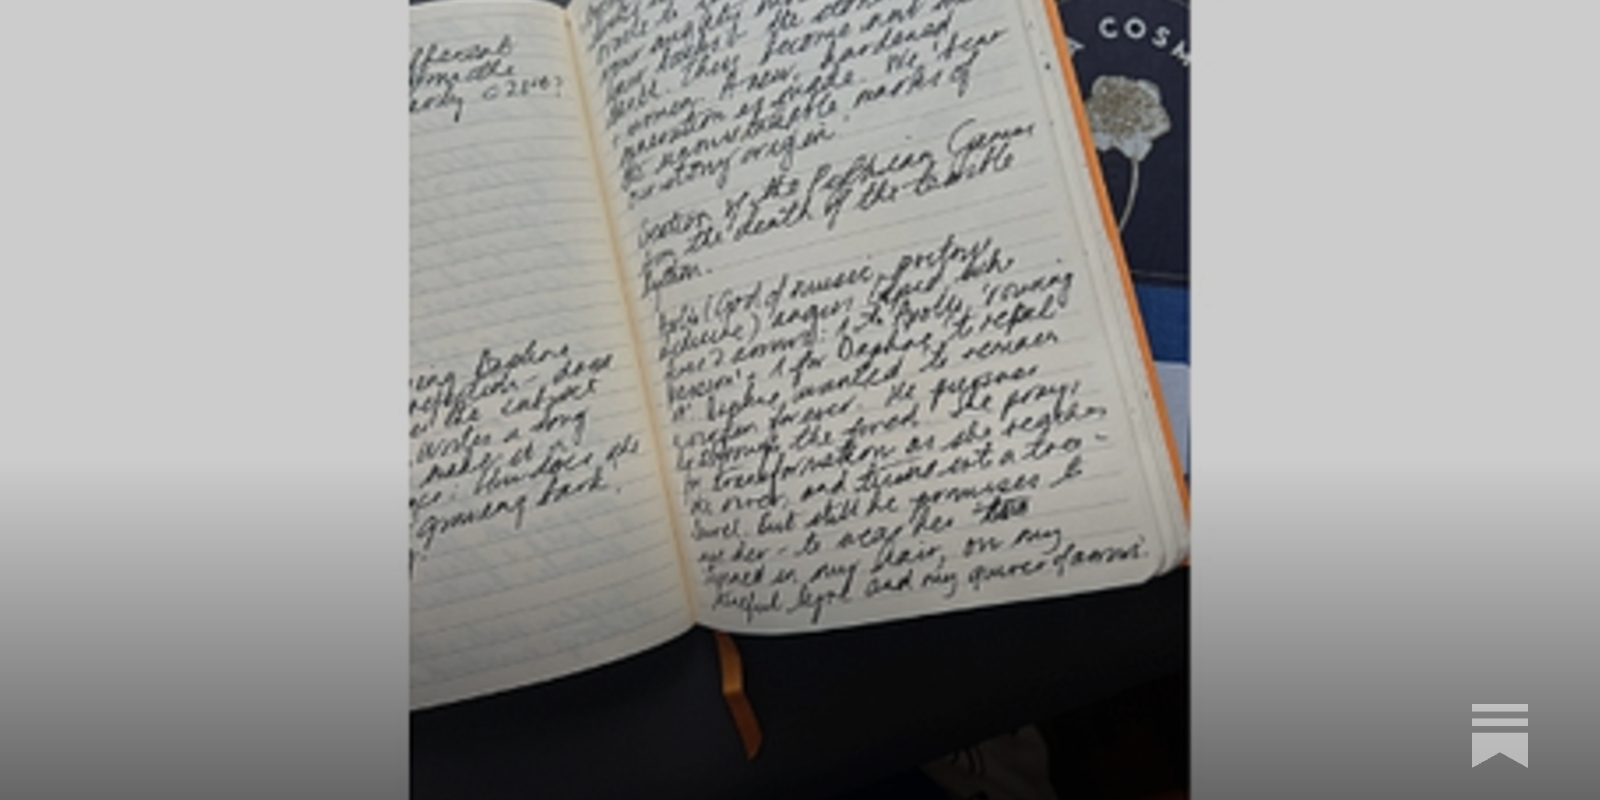 fferent
early c 2 or 3?
ing
reflection - does
the subject
writes a song
make it a
How does she
growing bark.
made to
your mighty
the stones
. They become not
women. A new, hardened
generation of people. We 'bear
the unmistakable marks of
our stony origin.
Creation of the Pythian Games
for the death of the terrible
Python.
Apollo (God of music, poetry,
medicine) angers Cupid, who
fires 2 arrows. 1 to Apollo, 'rousing
passion', 1 for Daphne, to repel
it. Daphne wanted to remain
a virgin forever. He pursues
her through the forest. She prays
for transformation as she reaches
the river, and turns into a tree -
laurel. But still he promises to
own her - to wear her
'leaved in my hair, on my
tuneful lyre and my quiver of arrows'.
A COSM